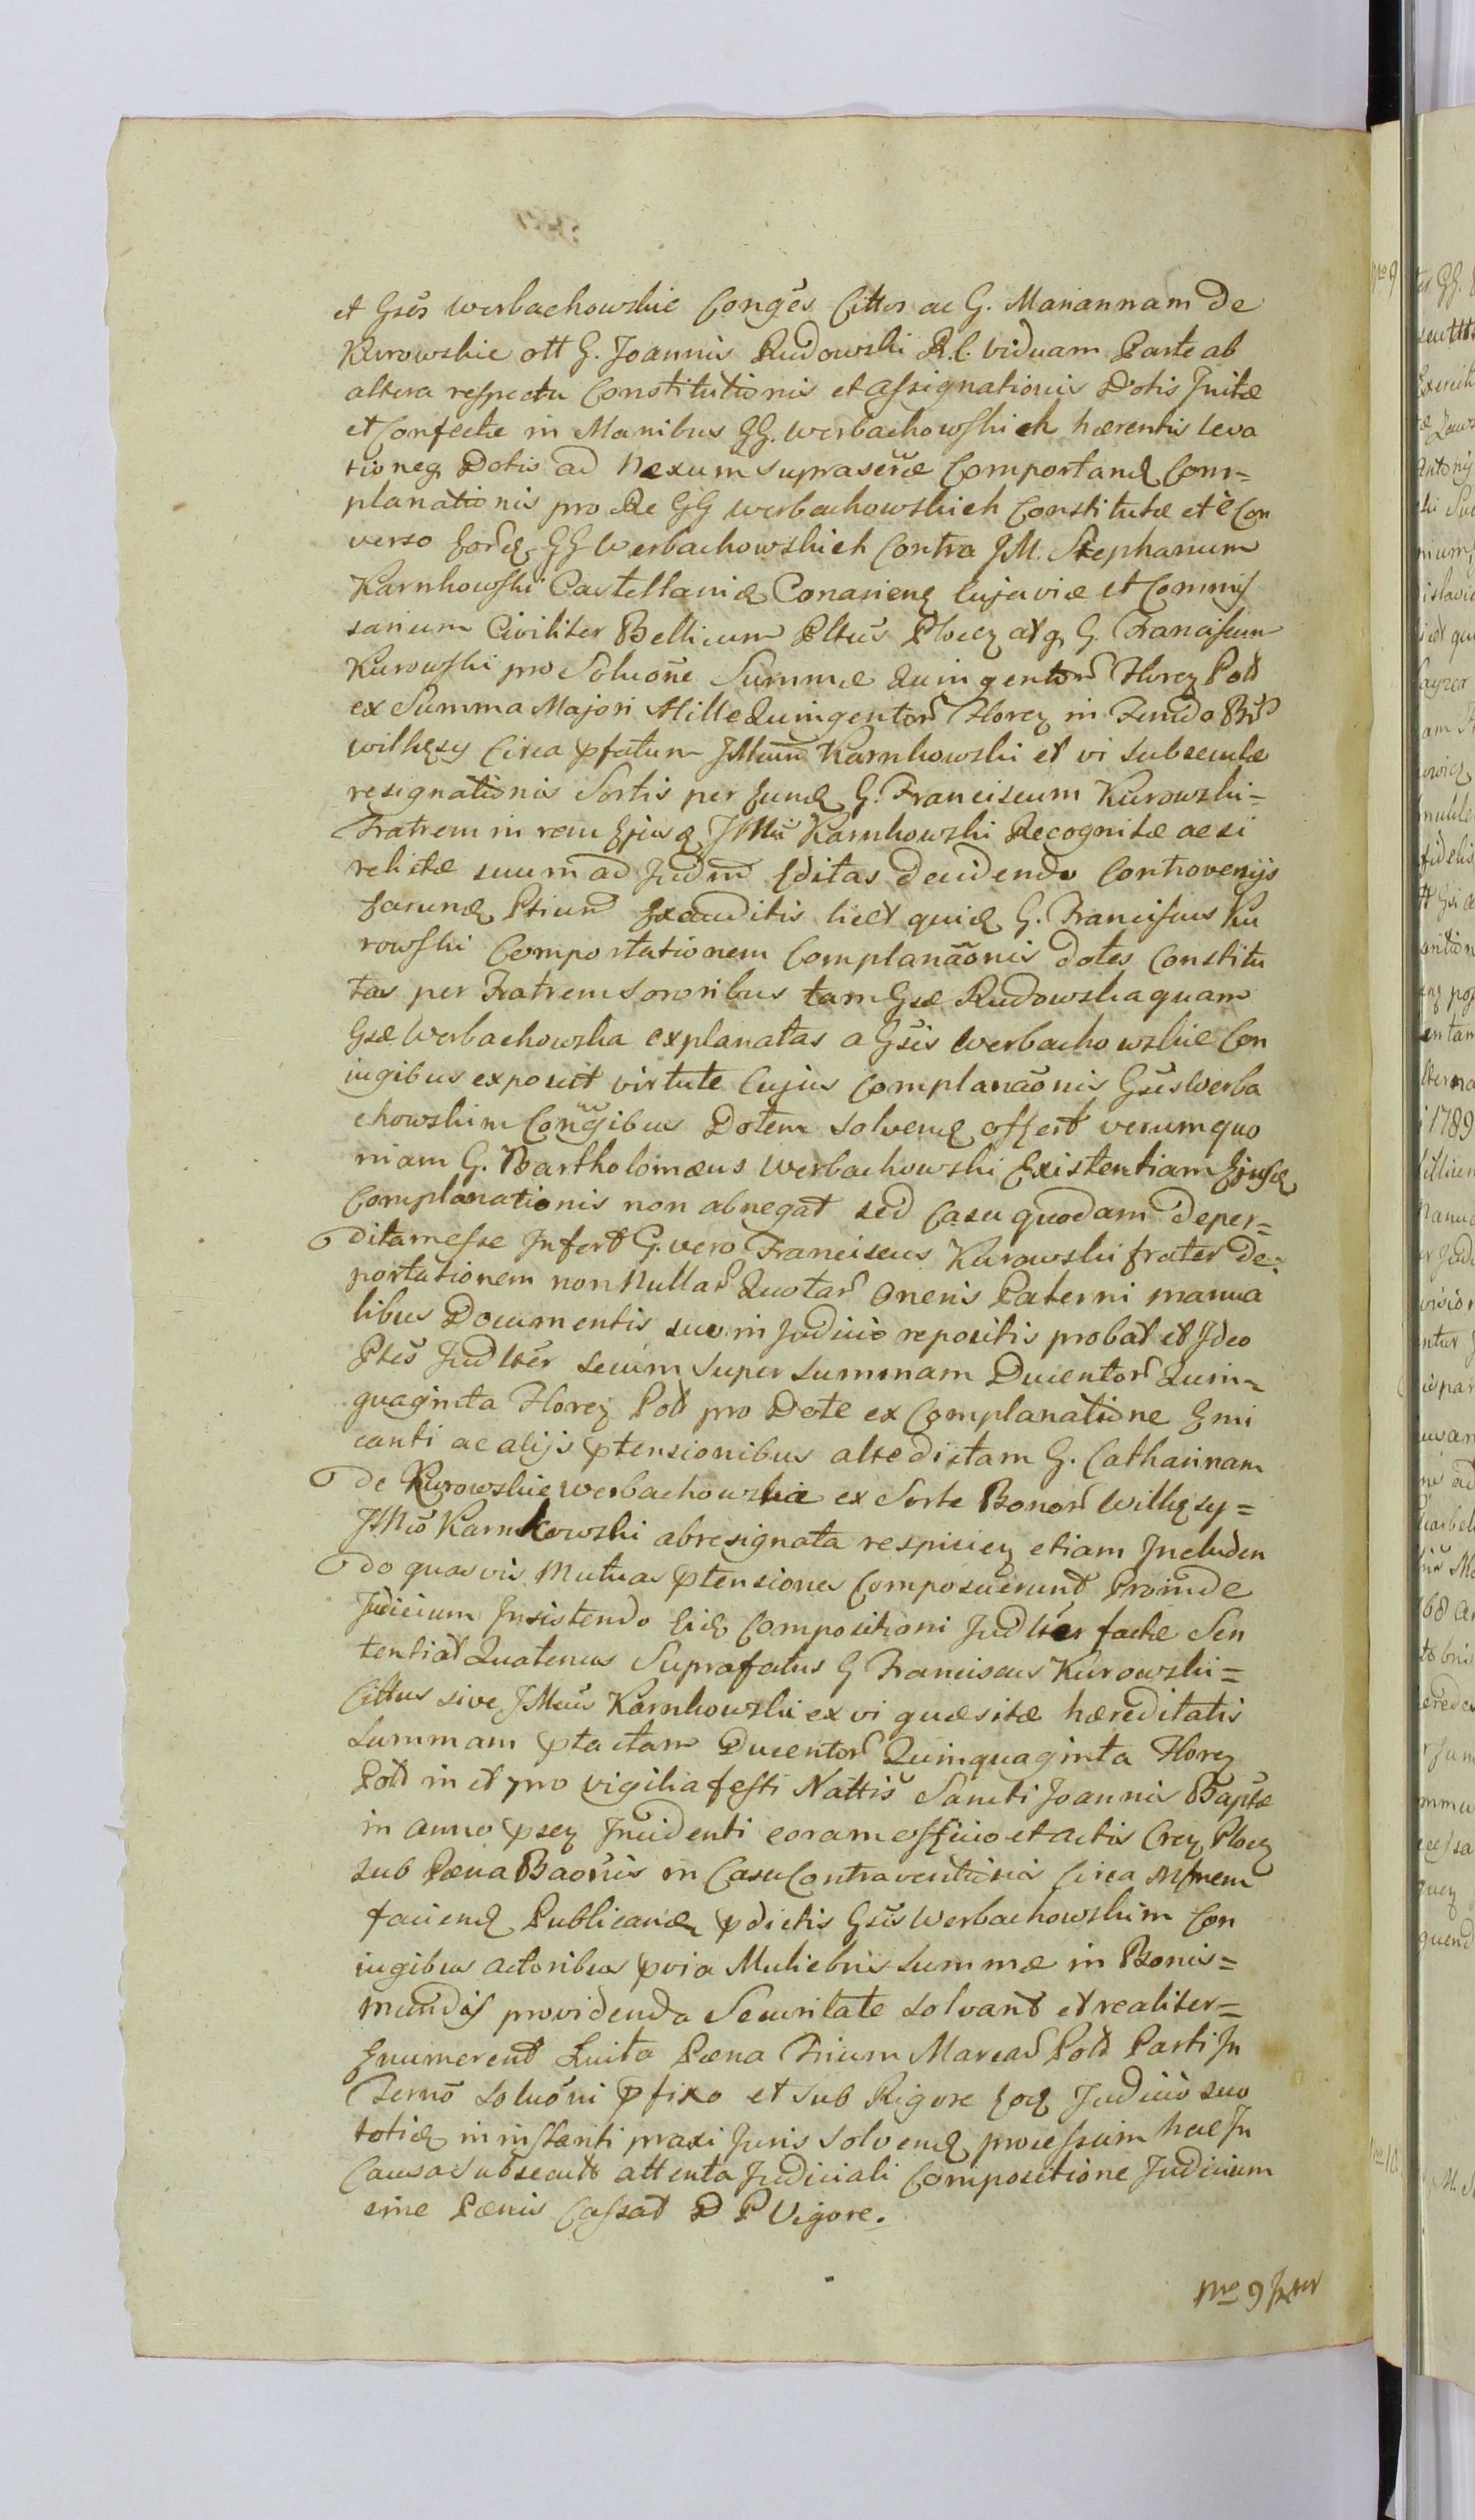 et Gses Werbachowskie Conges Cittos ac G. Mariannam de
Kurowskie ott G. Joannis Rudowski R.l. viduam Parte ab
altera respectu Constitutionis et assignationis Dotis Initæ
et Confectæ in Manibus GG. Werbachowskich hærentis leva
tioneq Dotis ad Nexum suprascræ Comportand Com=
planationis pro Re GG Werbachowskich Constitutæ et è Con
verso Eord GG Werbachowskich Contra JM. Stephanum
Karnkowski Castellanid Conarienq Cujaviæ et Commis
sarium Civiliter Bellicum Pltus Plocq atq G. Franciscum
Kurowski pro Soluone Summæ Quingentor Florq Pold
ex Summa Majori Mille Quingentor Florq in Fundo Br
Wilkęsy Circa pfatum JMum Karnkowski et vi subsecutæ
resignationis Sortis per Eund G. Franciscum Kurowski=
Fratrem in rem Ejusd JMi Karnkowski Recognitæ ac si
relictæ suum ad Judm Editas decidendo Controversijs
Earund Ptium Exauditis licet quid G. Franciscus Ku
rowski Comportationem Complanaonis dotes Constitu
tas per Fratrem sororibus tam Gsæ Rudowska quam
Gsæ Werbachowska explanatas a Gsis Werbachowskie Con
iugibus exposcit virtute Cujus Complanaonis Gsis Werba
chowskim Congibus Dotem solvend offert verum quo
niam G. Bartholomæus Werbachowski Existentiam Ejusd
Complanationis non abnegat sed Casu quodam deper=
ditam esse Infert G. vero Franciscus Kurowski frater de=
portationem non Nullar Quotar Oneris Paterni manua
libus Documentis suo in Judicio repositis probat et Ideo
Ptes Judlter secum super summam Ducentor Quin=
quaginta Florq Pold pro Dote ex Complanatione Emi
canti ac alijs ptensionibus altedictam G. Catharinam
de Kurowskie Werbachowska ex Sorte Bonor Wilkęsy=
JMo Karnkowski abresignata respicieq etiam Includen
do quasvis Mutuas ptensiones Composuerunt Proinde
Judicium Insistendo Eid Compositioni Judlter factæ Sen
tentiat Quatenus Suprafatus G Franciscus Kurowski=
Cittus sive JMus Karnkowski ex vi quæsitæ hæreditatis
summam ptactam Ducentor Quinquaginta Florq
Pold in et pro vigilia festi Nattis Sancti Joannis Baptæ
in anno pseq Incidenti coram officio et actis Creq Plocq
sub Pæna Baonis in Casu Contraventionis Circa
faciend Publicand pdictis Gsis Werbachowskim Con
iugibus actoribus pvia Muliebris summæ in Bonis=
mundis providenda Securitate solvant et realiter=
Enumerent Luita Pæna Trium Marcar Pold Parti In
Termo soluoni pfixo et sub Rigore Eod Judicio suo
totid in instanti praxi Juris solvend processum hac In
Causa subsecutt attenta Judiciali Compositione Judicium
sine Pænis Cassat D P Vigore.
Nro 9 Inter